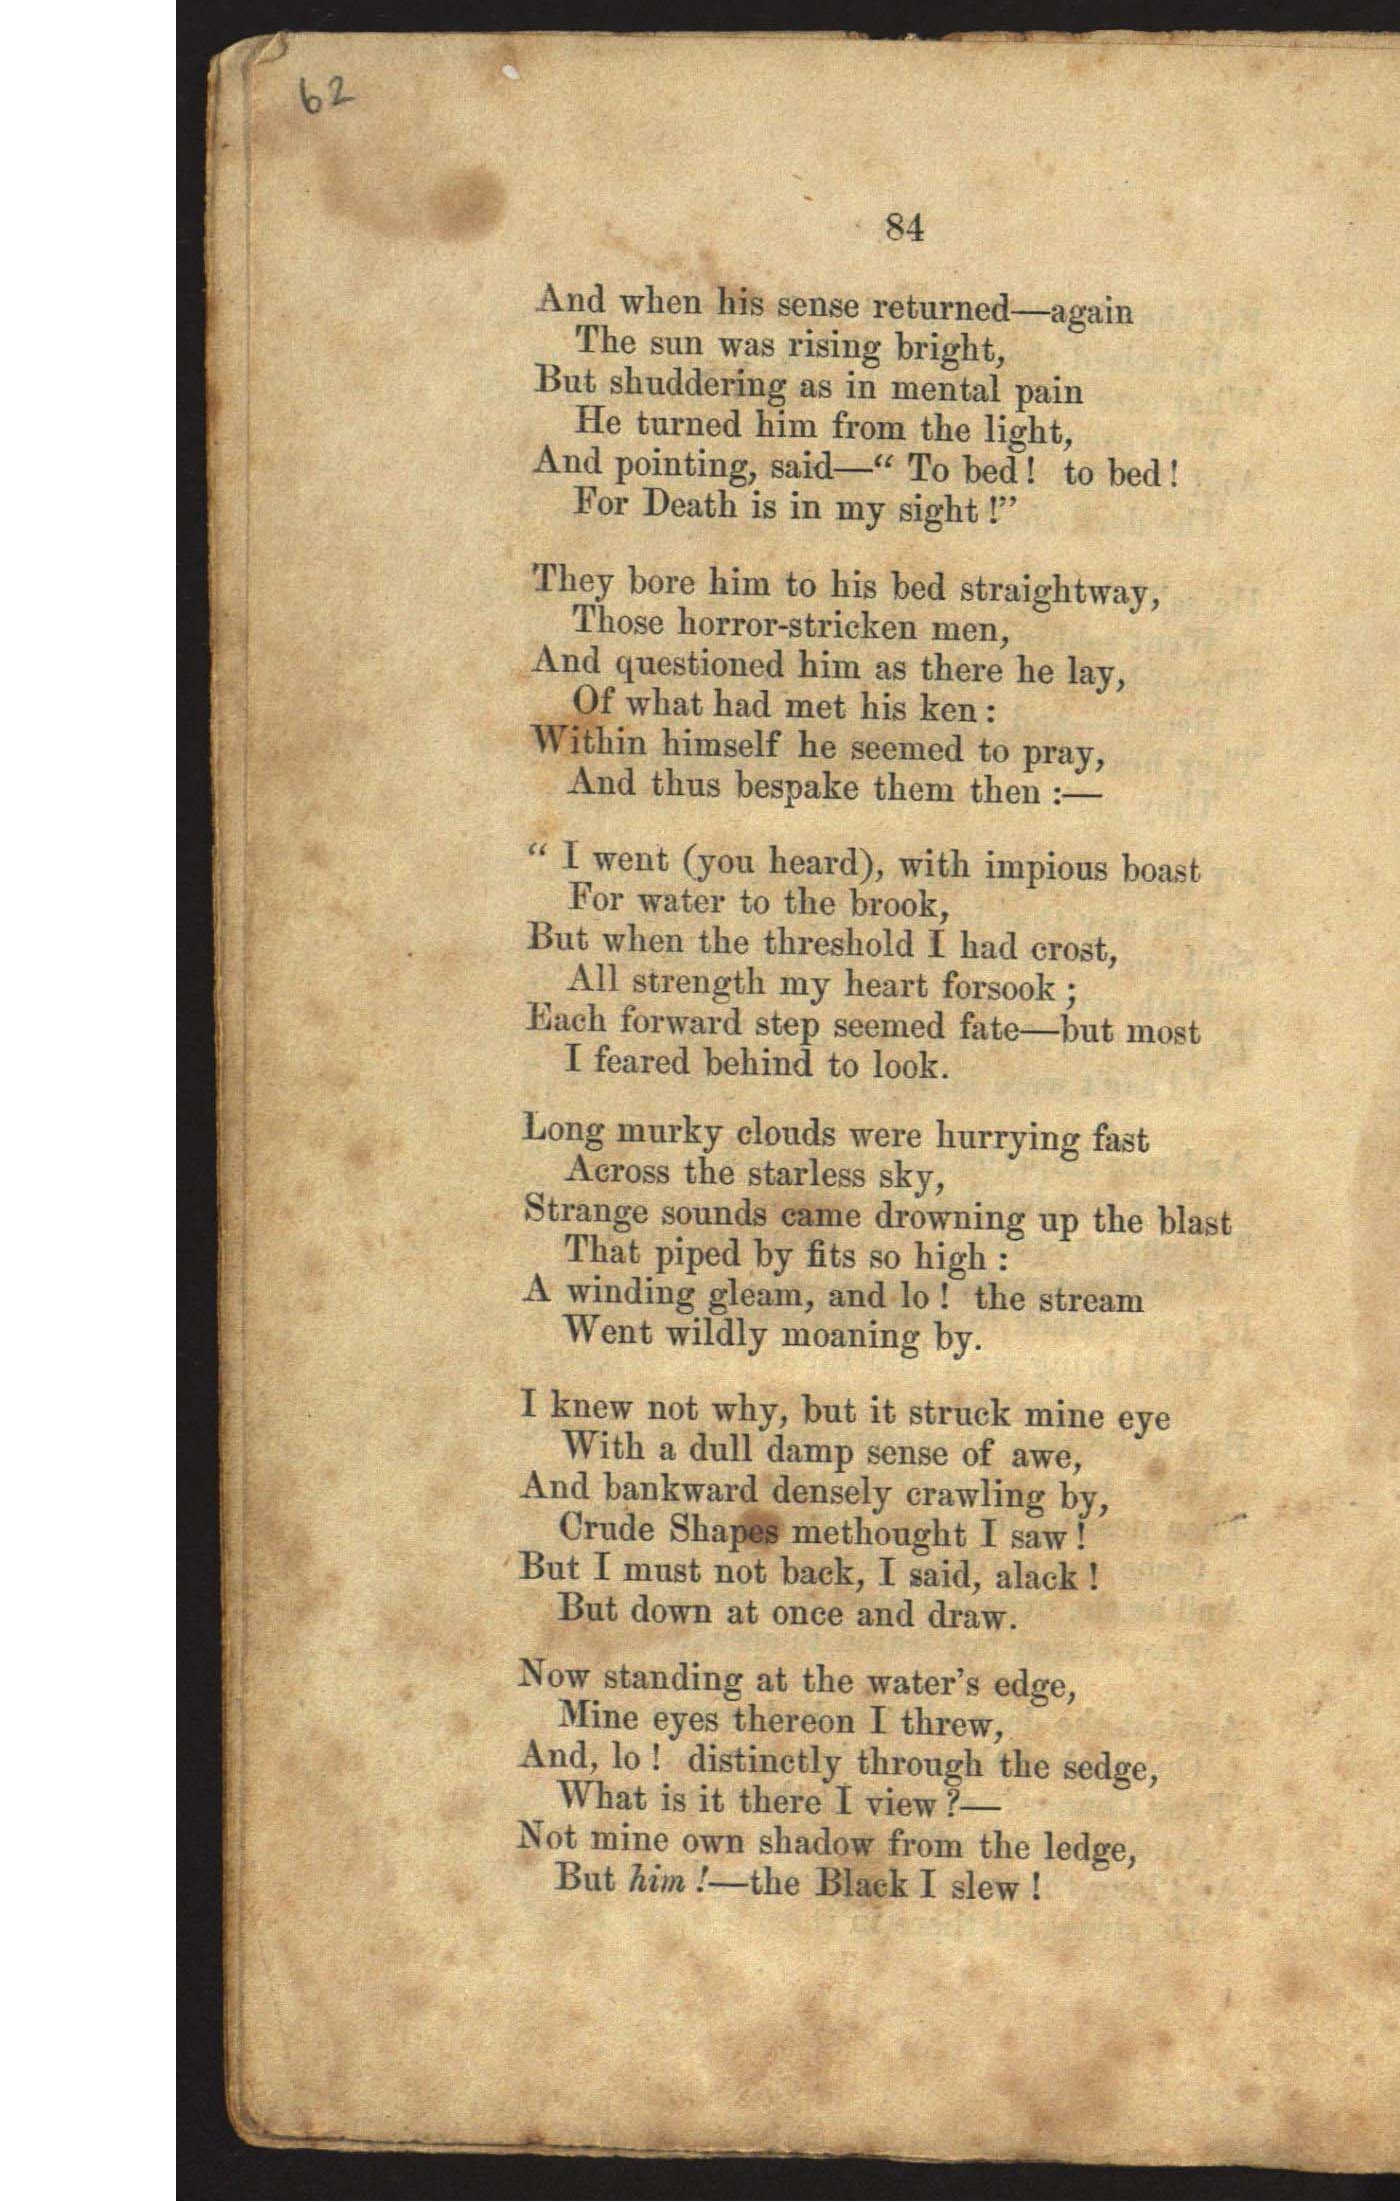 62
84
And when his sense returned—again
The sun was rising bright,
But shuddering as in mental pain
He turned him from the light,
And pointing, said—“ To bed ! to bed !
For Death is in my sight !”
They bore him to his bed straightway,
Those horror-stricken men,
And questioned him as there he lay,
Of what had met his ken :
Within himself he seemed to pray,
And thus bespake them then :—
“ I went (you heard), with impious boast
For water to the brook,
But when the threshold I had crost,
All strength my heart forsook ;
Each forward step seemed fate—but most
I feared behind to look.
Long murky clouds were hurrying fast
Across the starless sky,
Strange sounds came drowning up the blast
That piped by fits so high :
A winding gleam, and lo ! the stream
Went wildly moaning by.
I knew not why, but it struck mine eye
With a dull damp sense of awe,
And bankward densely crawling by,
Crude Shapes methought I saw !
But I must not back, I said, alack !
But down at once and draw.
Now standing at the water’s edge,
Mine eyes thereon I threw,
And, lo ! distinctly through the sedge,
What is it there I view ?—
Not mine own shadow from the ledge,
But him !—the Black I slew !